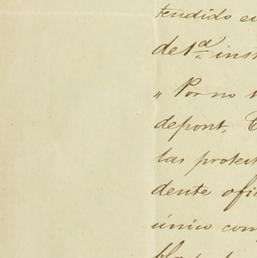 tendido e
de 1ª ins
" Por no
depont.
las protest
dente ofi
único com